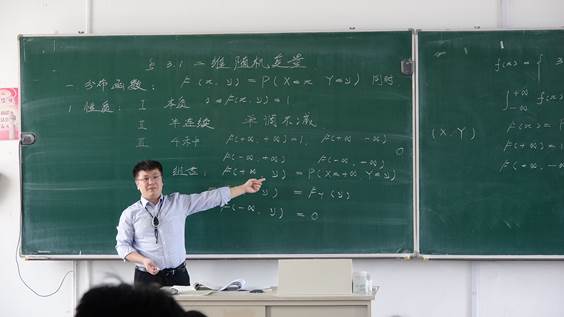 §3.1 二维随机变量
一 分布函数: F(x, y) = P(X=x Y=y) 同时.
1 性质: I 本质 0=F(x,y)=1
II 半连续 单调不减
III 4本中 F(+∞,+∞)=1, F(+∞ -∞)
F(-∞,+∞) F(-∞,-∞) 0
F(+∞, y) = P(X=+∞ Y=y)
y) = F_Y(y)
F(-∞, y) = 0
f(x) = { 3
∫ +∞ -∞ f(x)
(X,Y)
F(+∞,+∞)=1
F(+∞, -∞